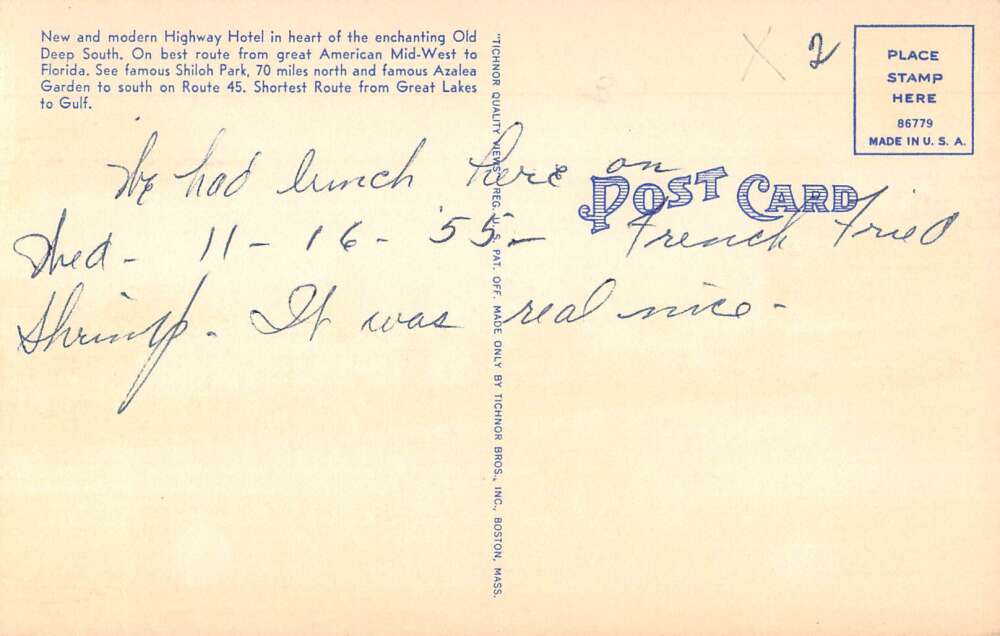 New and modern Highway Hotel in heart of the enchanting Old
Deep South. On best route from great American Mid-West to
Florida. See famous Shiloh Park, 70 miles north and famous Azalea
Garden to south on Route 45. Shortest Route from Great Lakes
to Gulf.
X 2
PLACE
STAMP
HERE
86779
MADE IN U. S. A.
POST CARD
We had lunch here on
Wed - 11 - 16 - '55 - French Fried
Shrimp. It was real nice -
"TICHNOR QUALITY VIEWS," REG. U. S. PAT. OFF. MADE ONLY BY TICHNOR BROS., INC., BOSTON, MASS.